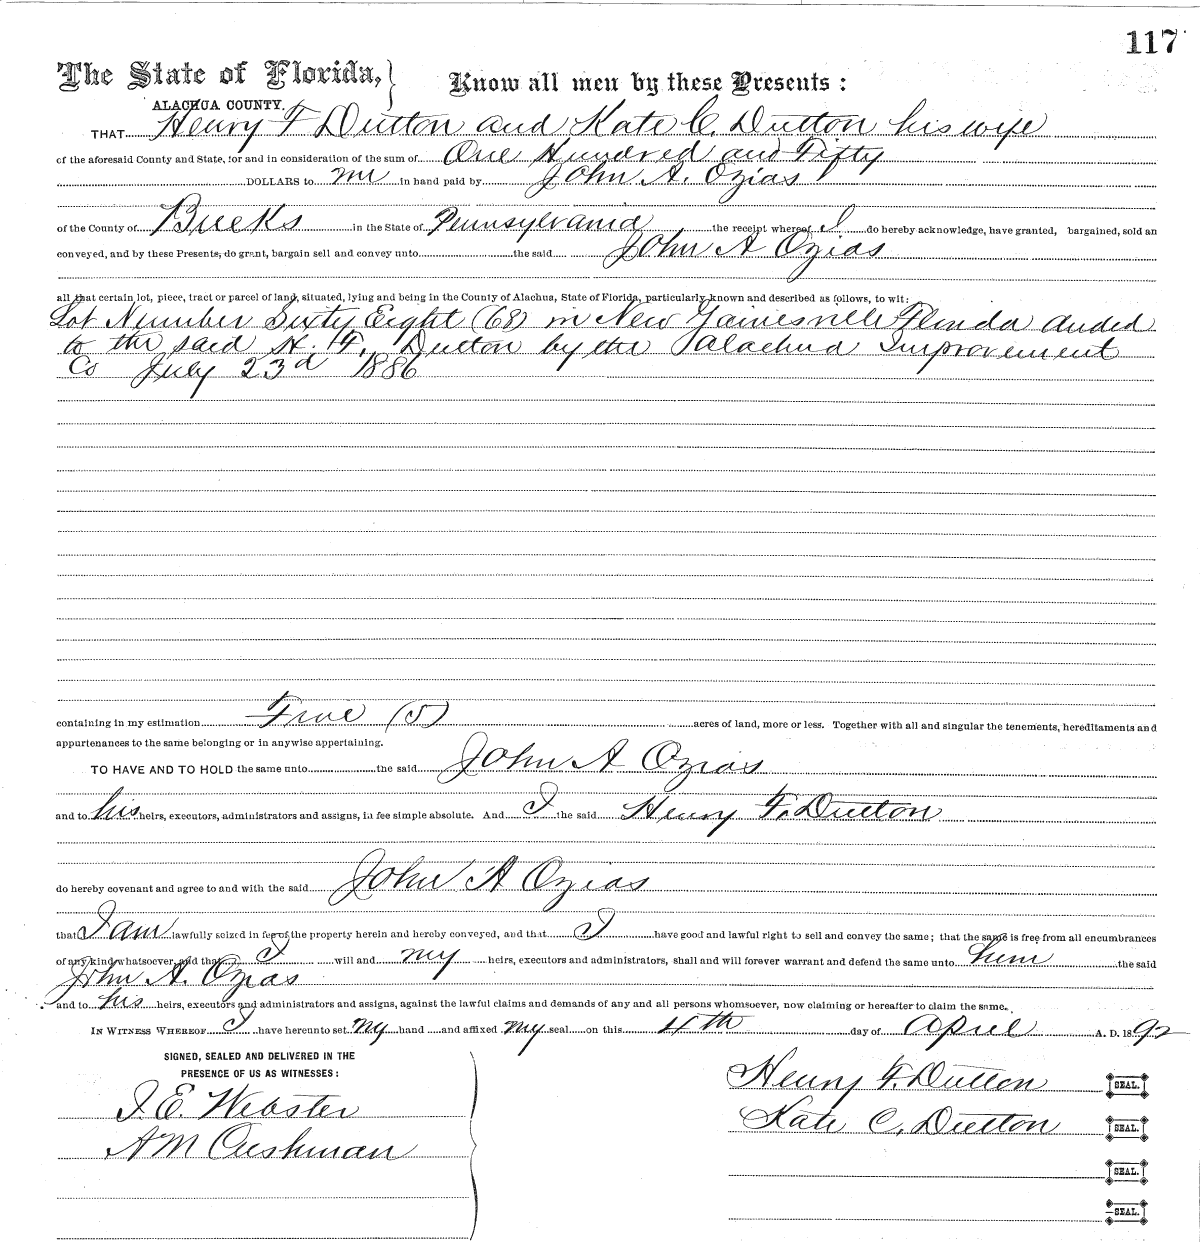 117
The State of Florida, } Know all men by these Presents :
ALACHUA COUNTY.
THAT Henry F Dutton and Kate C. Dutton his wife
of the aforesaid County and State, for and in consideration of the sum of One Hundred and Fifty
DOLLARS to me in hand paid by John A. Ozias
of the County of Bucks in the State of Pennsylvania the receipt whereof I do hereby acknowledge, have granted, bargained, sold an
conveyed, and by these Presents, do grant, bargain sell and convey unto the said John A Ozias
all that certain lot, piece, tract or parcel of land, situated, lying and being in the County of Alachua, State of Florida, particularly known and described as follows, to wit:
Lot Number Sixty Eight (68) in New Gainesville Florida deeded
to the said H. F. Dutton by the Alachua Improvement
Co July 23d 1886
containing in my estimation Five (5) acres of land, more or less. Together with all and singular the tenements, hereditaments and
appurtenances to the same belonging or in anywise appertaining.
TO HAVE AND TO HOLD the same unto the said John A Ozias
and to his heirs, executors, administrators and assigns, in fee simple absolute. And I the said Henry F. Dutton
do hereby covenant and agree to and with the said John A Ozias
that I am lawfully seized in fee of the property herein and hereby conveyed, and that I have good and lawful right to sell and convey the same; that the same is free from all encumbrances
of any kind whatsoever, and that I will and my heirs, executors and administrators, shall and will forever warrant and defend the same unto him the said
John A. Ozias
and to his heirs, executors and administrators and assigns, against the lawful claims and demands of any and all persons whomsoever, now claiming or hereafter to claim the same.
IN WITNESS WHEREOF I have hereunto set my hand and affixed my seal on this 4th day of April A. D. 1892
SIGNED, SEALED AND DELIVERED IN THE
PRESENCE OF US AS WITNESSES:
J. E. Webster
A M Cushman
Henry F. Dutton SEAL.
Kate C. Dutton SEAL.
SEAL.
SEAL.